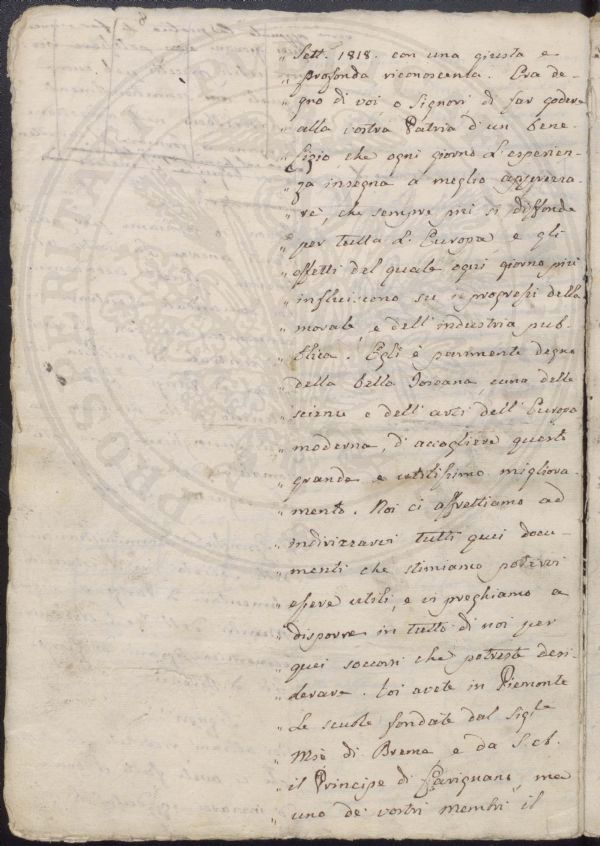 „ Sett. 1818. con una giusta e
„ profonda riconoscenza. Era de-
„ gno di voi, o Signori di far godere
„ alla vostra Patria d'un bene-
„ fizio che ogni giorno l'esperien-
„ za insegna a meglio apprezza-
„ re, che sempre più si diffonde
„ per tutta l'Europa, e gli
„ effetti del quale ogni giorno più
„ influiscono su i progressi della
„ morale, e dell'industria pub-
„ blica. Egli è parimente degno
„ della bella Toscana, cuna delle
„ scienze e dell'arti dell'Europa
„ moderna, d'accogliere questo
„ grande e utilissimo migliora-
„ mento. Noi ci affrettiamo ad
„ indirizzarvi tutti quei docu-
„ menti che stimiamo potervi
„ essere utili, e vi preghiamo a
„ disporre in tutto di noi per
„ quei soccorsi che potreste desi-
„ derare. Voi avete in Piemonte
„ le scuole fondate dal Sig.
„ Mse di Breme e da S.
„ il Principe di Carignano, ma
„ uno de' vostri membri il
PROSPERITÀ